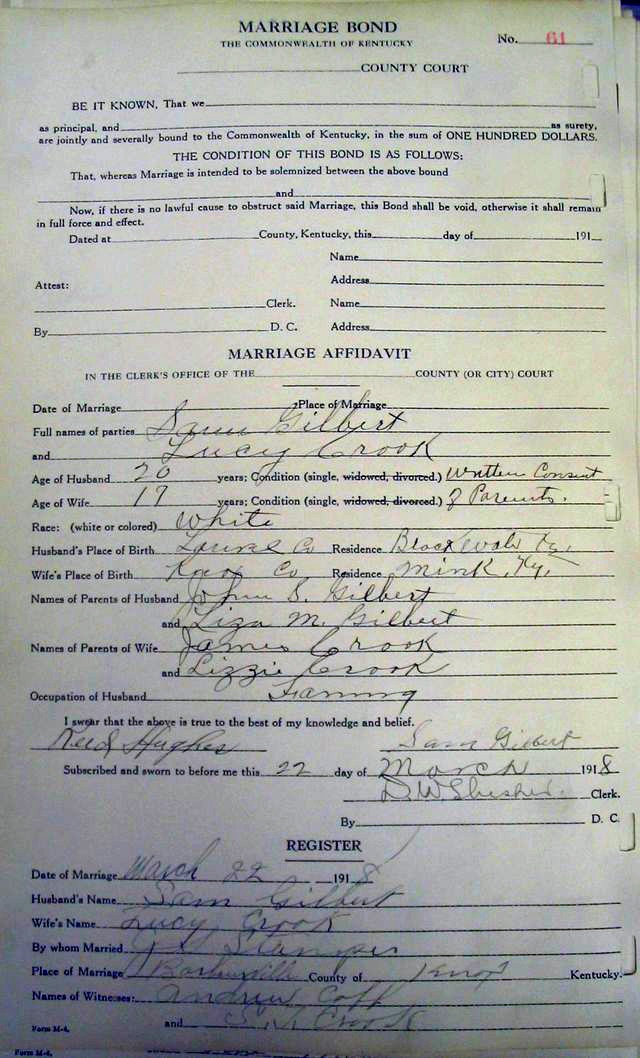 MARRIAGE BOND
THE COMMONWEALTH OF KENTUCKY
No. 61
COUNTY COURT
BE IT KNOWN, That we
as principal, and as surety,
are jointly and severally bound to the Commonwealth of Kentucky, in the sum of ONE HUNDRED DOLLARS.
THE CONDITION OF THIS BOND IS AS FOLLOWS:
That, whereas Marriage is intended to be solemnized between the above bound
and
Now, if there is no lawful cause to obstruct said Marriage, this Bond shall be void, otherwise it shall remain
in full force and effect.
Dated at County, Kentucky, this day of 191
Name
Attest: Address
Clerk. Name
By D. C. Address
MARRIAGE AFFIDAVIT
IN THE CLERK'S OFFICE OF THE COUNTY (OR CITY) COURT
Date of Marriage Place of Marriage
Full names of parties Sam Gilbert
and Lucy Crook
Age of Husband 20 years; Condition (single, widowed, divorced.) Written Consent
Age of Wife 17 years; Condition (single, widowed, divorced.) of Parents.
Race: (white or colored) White
Husband's Place of Birth Laurel Co Residence Ky.
Wife's Place of Birth Knox Co Residence Mink, Ky.
Names of Parents of Husband John S. Gilbert
and Liza M. Gilbert
Names of Parents of Wife James Crook
and Lizzie Crook
Occupation of Husband Faming
I swear that the above is true to the best of my knowledge and belief.
Reed Hughes Sam Gilbert
Subscribed and sworn to before me this 22 day of March 1918
D.W. Clerk.
By D. C.
REGISTER
Date of Marriage March 22 1918
Husband's Name Sam Gilbert
Wife's Name Lucy Crook
By whom Married Stamper
Place of Marriage Barbourville County of Knox Kentucky.
Names of Witnesses: Andrew
and Crook
Form M-4.
Form M-4.